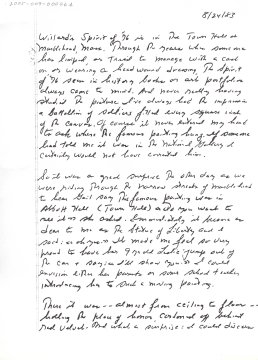 5/24/83
Willard's Spirit of 76 is in The Town Hall at
Marblehead, Mass. Through the years when someone
has limped or tried to manage with a cane
or is wearing a head wound dressing The Spirit
of 76 seen in history books or art portfolios
always come to mind. And never really having
studied the picture I've always had the impression
a battalion of soldiers filled every square inch
of the canvas. Of course it never entered my head
to ask where the famous painting hung. If someone
had told me it was in the National Gallery I
certainly would not have corrected him.
So it was a great surprise the other day as we
were riding through the narrow streets of Marblehead
to hear Gail say the famous painting was in
Abbott Hall (Town Hall) and do you want to
see it as she asked. Immediately it became as
dear to me as the Statue of Liberty and I
said: as
It made me feel so very
proud to have her 9 year old jump out of
the car
I could
envision either her parents or some school teacher
introducing her to such a moving painting.
There it was -- almost from ceiling to floor --
holding the place of honor cordoned off behind
red velvet. And what a surprise: I could discover